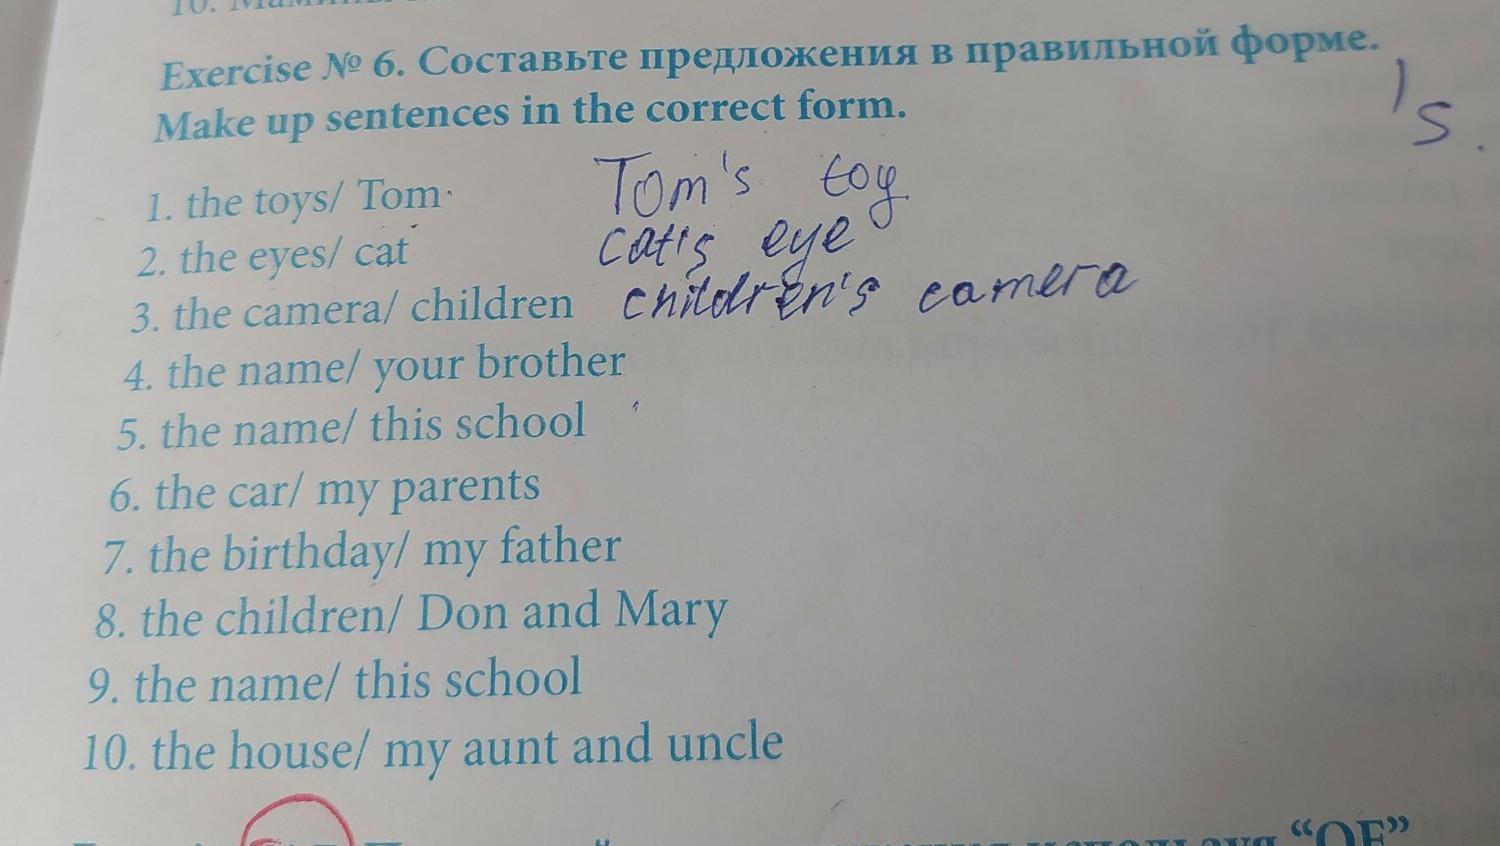 10.
Exercise № 6. Составьте предложения в правильной форме.
Make up sentences in the correct form.
's
1. the toys/ Tom Tom's toy
2. the eyes/ cat cat's eye
3. the camera/ children children's camera
4. the name/ your brother
5. the name/ this school
6. the car/ my parents
7. the birthday/ my father
8. the children/ Don and Mary
9. the name/ this school
10. the house/ my aunt and uncle
“OF”